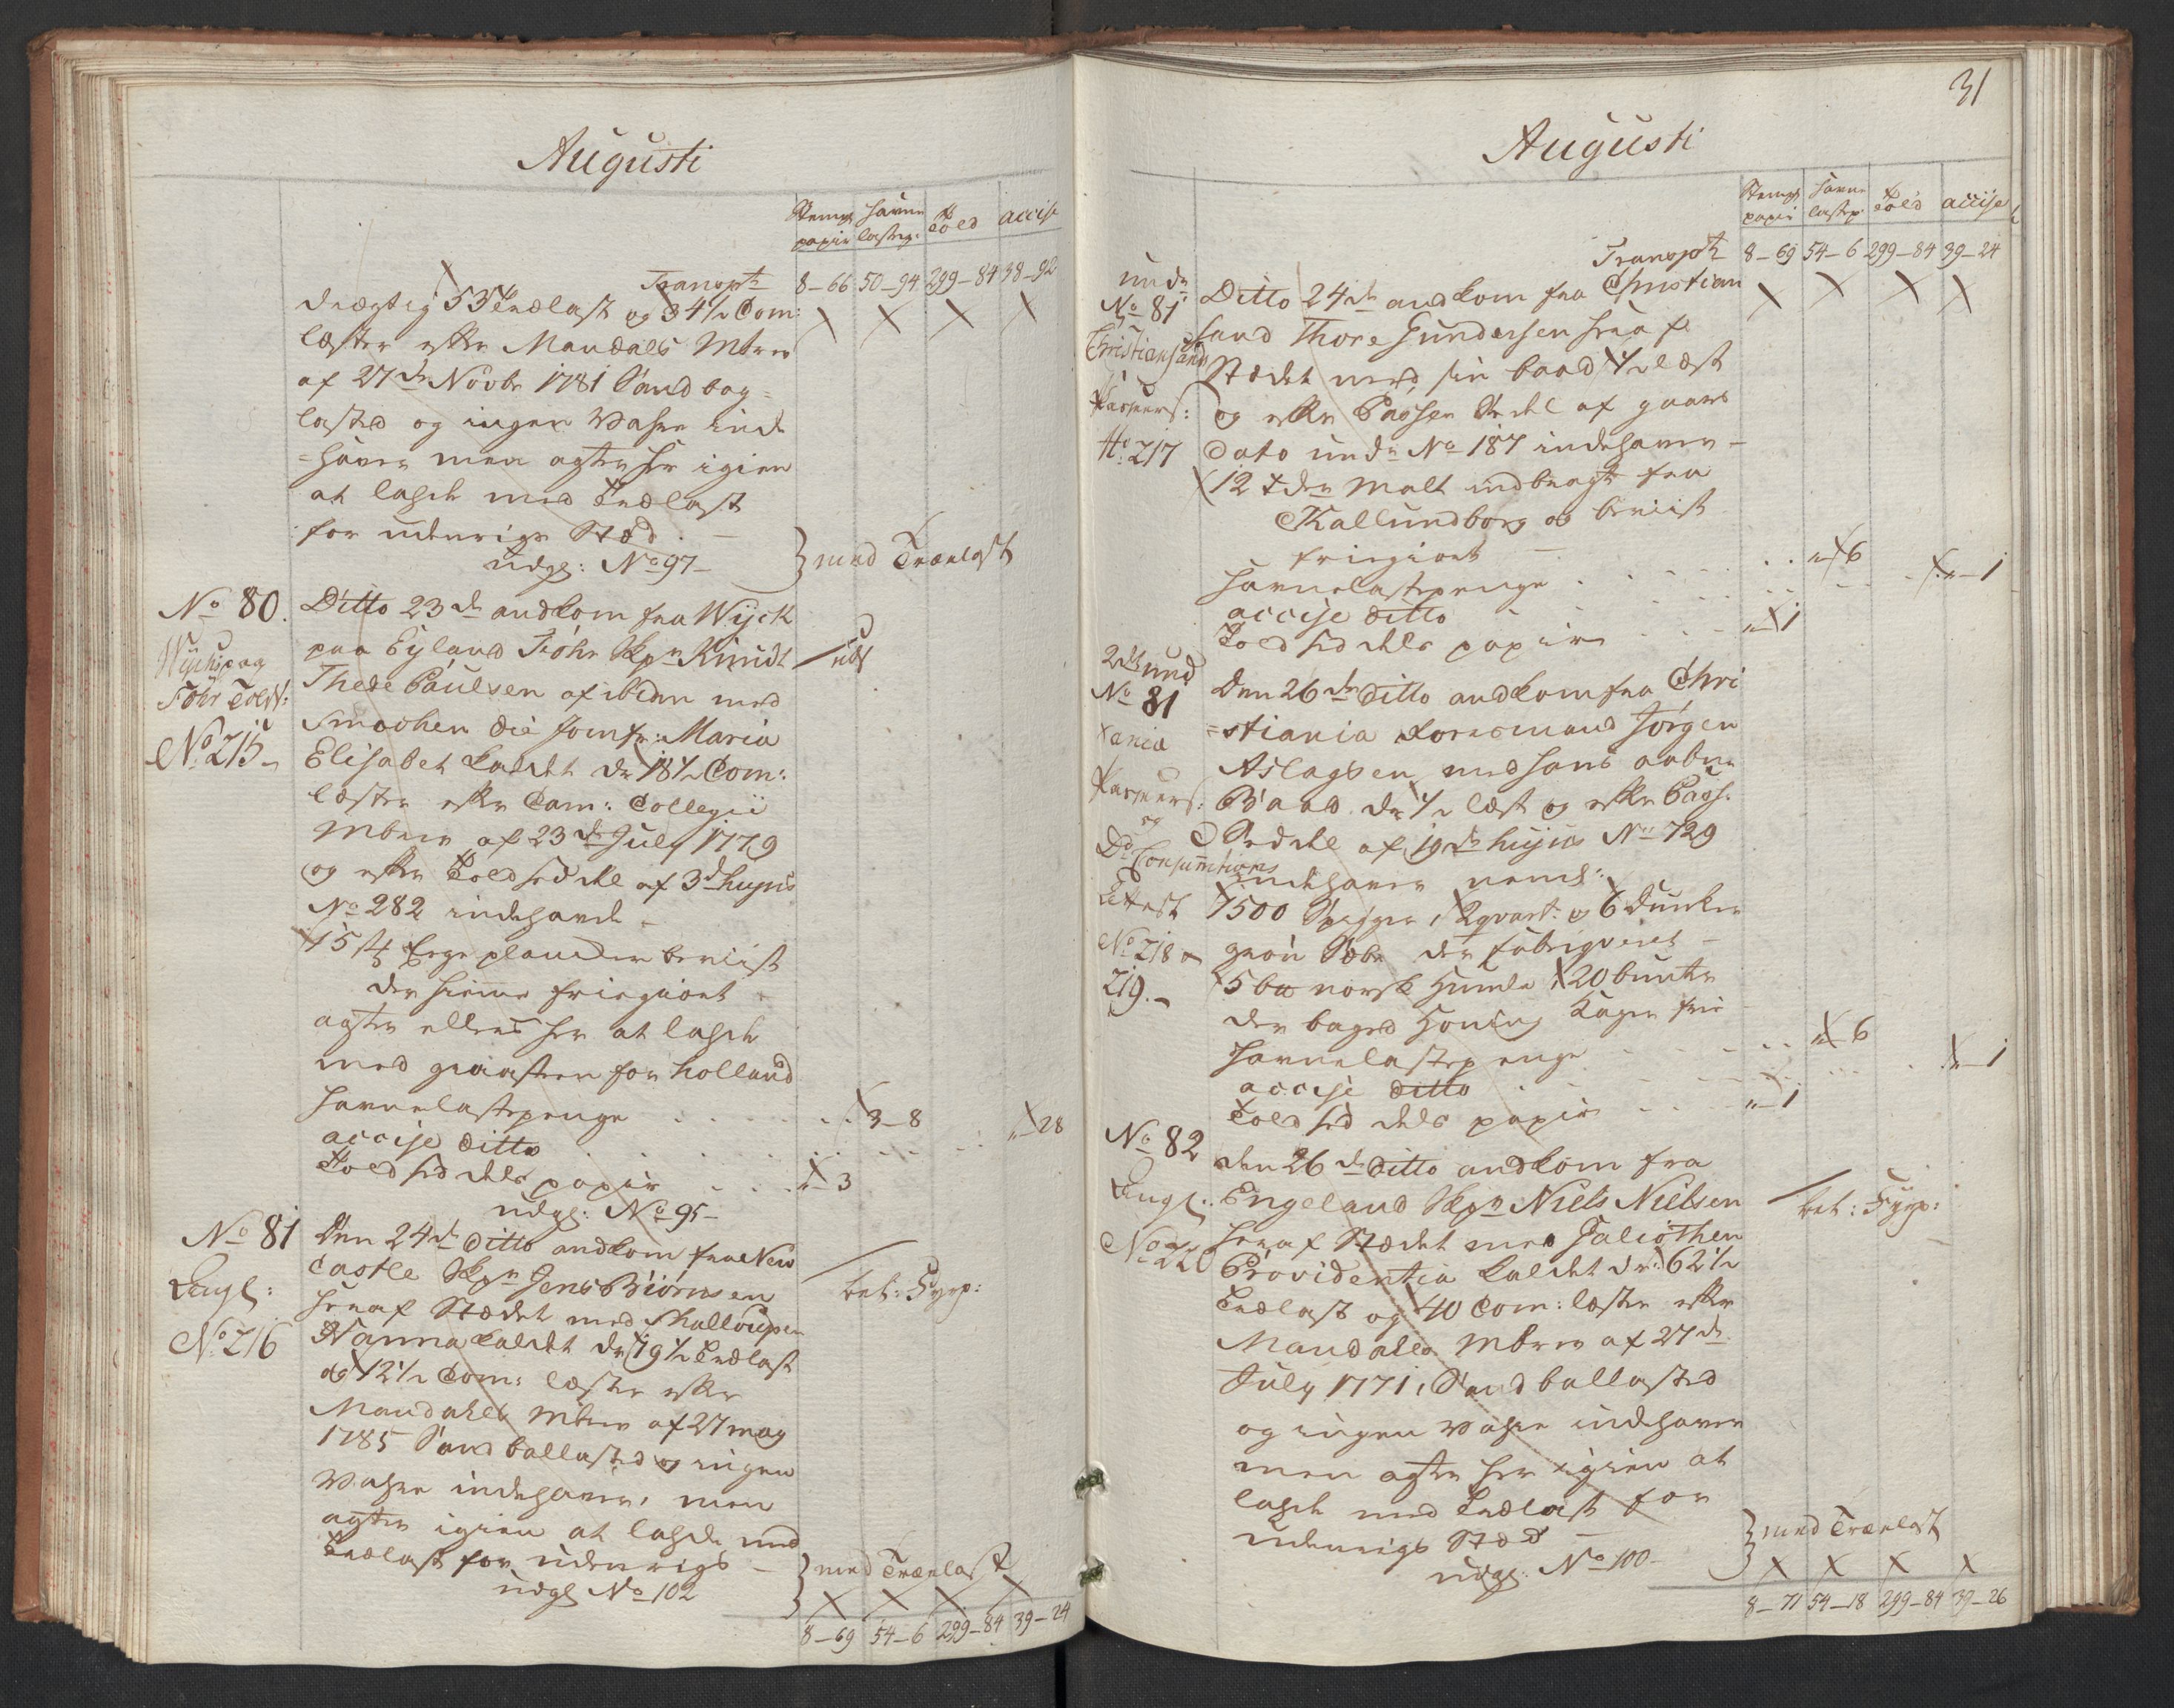 Augusti
Stempl. papir | Havne lastep: | Told | accise
Transpt 8-66 50-94 299-84 38-92
drægtig 53 Trælast og 34 1/2 Com:
læster efter Mandals Mbrev
af 27de Novbr 1781 Sandbag-
lasted og ingen Vahre inde
=haver men agter her igien
at lahde med Trælast
for udenrigs Stæd. —
udgl: No 97 — } med Trælast
No 80.
Wyck paa
Föhr Told:
No 215
Ditto 23de andkom fra Wyck
paa Eyland Föhr Skpr Knudt
Thede Paulsen af ibiden med
Smakken die Jomfr: Maria
Elisabet kaldet dr 18 1/2 Com:
læster efter Cam: Collegii
Mbrev af 23de July 1779
og efter Toldseddel af 3d hujus
No 282 indehavde —
beviist
der hiemme friegiort
agter ellers her at lahde
med for Holland
Havnelastepenge . . . 3-8
accise ditto . . . "-28
Toldseddels papir . . . "-3
udgl: No 95 —
No 81
Engl:
No 216
Den 24de Ditto andkom fra New
castle Skpr Jens Biørnsen
heraf Stædet med Skalloupen
Nanna kaldet dr 19 1/2 Trælast
og 12 1/2 Com: læster efter
Mandahls Mbrev af 27 may
1785 Sandballasted og ingen
Vahre indehaver, men
agter igien at lahde med
Trælast for udenrigs —
udgl No 102
bet: Fyrp:
} med Trælast
8-69 54-6 299-84 39-24
31
Augusti
Stempl. papir | Havne lastep: | Told | accise
Transpt 8-69 54-6 299-84 39-24
undr
No 81
Christiansands
Passeers:
No 217
Ditto 24de andkom fra Christian
sand Thore Gundersen hera f
Stædet med sin baad 1/2 læst
og efter Passeer Sedel af gaars
Dato undr No 187 indehaver —
12 tdr Malt indbragt fra
Kallundborg og beviist
friegiort —
Havnelastepenge . . . "-6
accise ditto . . . "-1
Toldseddels papir . . . "-1
2de und
No 81
Xania
Passeers:
og
Do Consumtions
Attest
No 218 &
219.-
Den 26de Ditto andkom fra Chri
=stiania Jørgen
Aslagsen med hans aabne
Baad dr 1/2 læst og efter Pass.
Sedel af 19de hujus No 729
indehaver neml:
7500 , 2 qvart: og 6 Dunker
grøn Sæbe der fabriqveret —
5 norsk Humle, 20 bunter
der baged Honing Kager frie
Havnelastepenge . . . "-6
accise ditto . . . "-1
Toldseddels papir . . . "-1
No 82
Engl:
No 220
den 26de Ditto andkom fra
Engeland Skpr Niels Nielsen
heraf Stædet med Galiothen
Providentia kaldet dr: 62 1/2
Trælast og 40 Com: læster efter
Mandahls Mbrev af 27de
July 1771, Sandballasted
og ingen Vahre indehaver
men agter her igien at
lahde med Trælast for
udenrigs Stæd —
udgl: No 100 —
bet: Fyrp:
} med Trælast
8-71 54-18 299-84 39-26